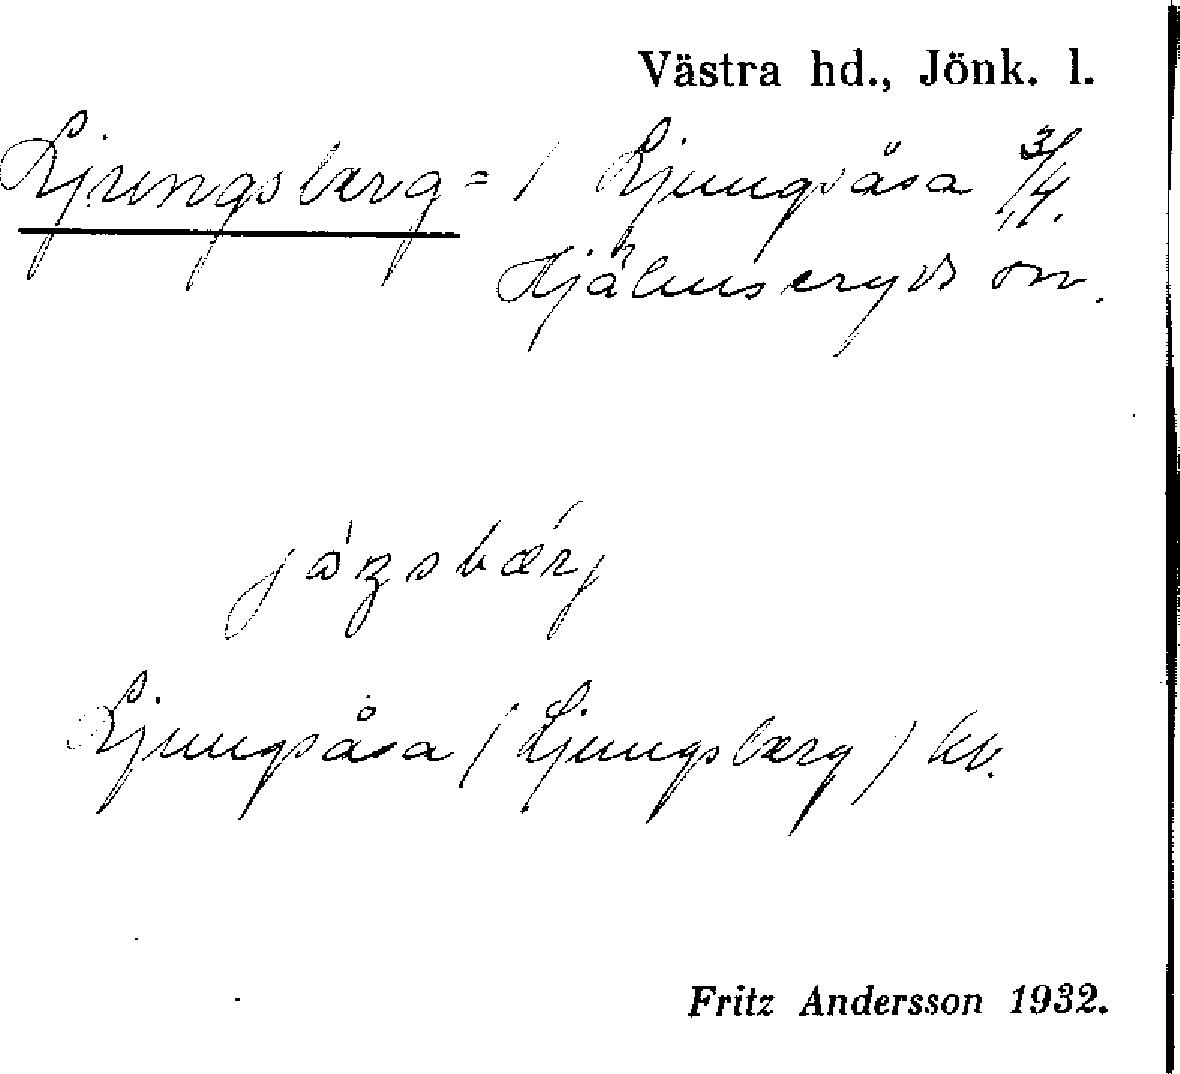 Västra hd., Jönk. l.
Ljungsberg = / Ljungsåsa 3/4.
Hjälmseryds sn.
Ljungsåsa (Ljungsberg) kv.
Fritz Andersson 1932.